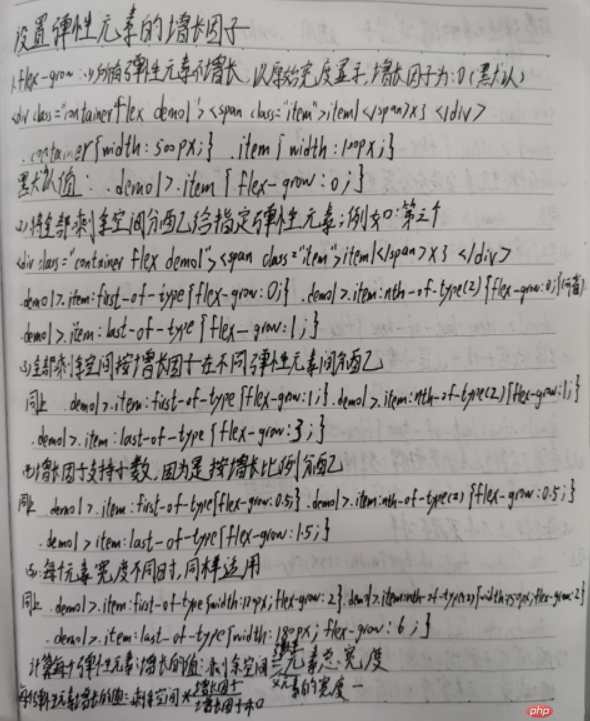 设置弹性元素的增长因子
1.flex-grow:(1)所有弹性元素不增长,以原始宽度显示,增长因子为:0(默认)
<div class="container flex demo1"><span class="item">item1</span>×3 </div>
.container{width:500px;} .item{width:100px;}
默认值: .demo1>.item{flex-grow:0;}
(2)将全部剩余空间分配给指定弹性元素;例如:第三个
<div class="container flex demo1"><span class="item">item1</span>×3 </div>
.demo1>.item:first-of-type{flex-grow:0;} .demo1>.item:nth-of-type(2){flex-grow:0;}
.demo1>.item:last-of-type{flex-grow:1;}
(3)全部剩余空间按增长因子在不同弹性元素间分配
同上 .demo1>.item:first-of-type{flex-grow:1;} .demo1>.item:nth-of-type(2){flex-grow:1;}
.demo1>.item:last-of-type{flex-grow:3;}
(4)增长因子支持小数,因为是按增长比例分配
同上 .demo1>.item:first-of-type{flex-grow:0.5;} .demo1>.item:nth-of-type(2){flex-grow:0.5;}
.demo1>item:last-of-type{flex-grow:1.5;}
(5)每个元素宽度不同时,同样适用
同上 .demo1>.item:first-of-type{width:120px;flex-grow:2} .demo1>.item:nth-of-type(2){width:150px;flex-grow:2}
.demo1>.item:last-of-type{width:180px;flex-grow:6;}
计算每个弹性元素增长的值:剩余空间=元素总宽度
每个弹性元素增长的值=剩余空间*增长因子
增长因子和
元素的宽度
php